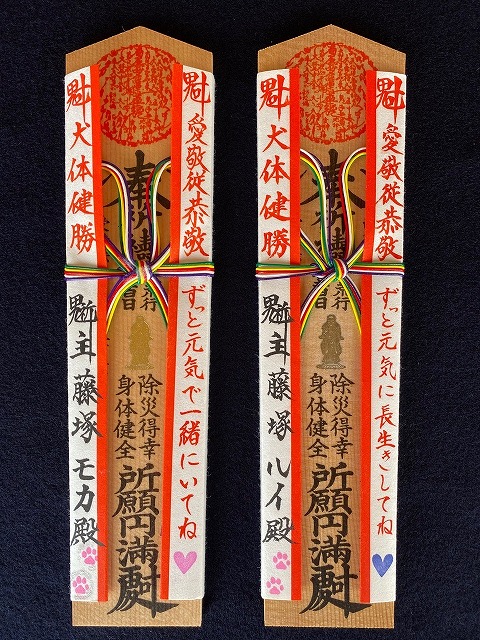 愛敬従恭敬
ずっと元気で一緒にいてね
奉
除災得幸
身体健全
所願円満
犬体健勝
主 藤塚 モカ殿
愛敬従恭敬
ずっと元気に長生きしてね
奉
除災得幸
身体健全
所願円満
犬体健勝
主 藤塚 ルイ殿